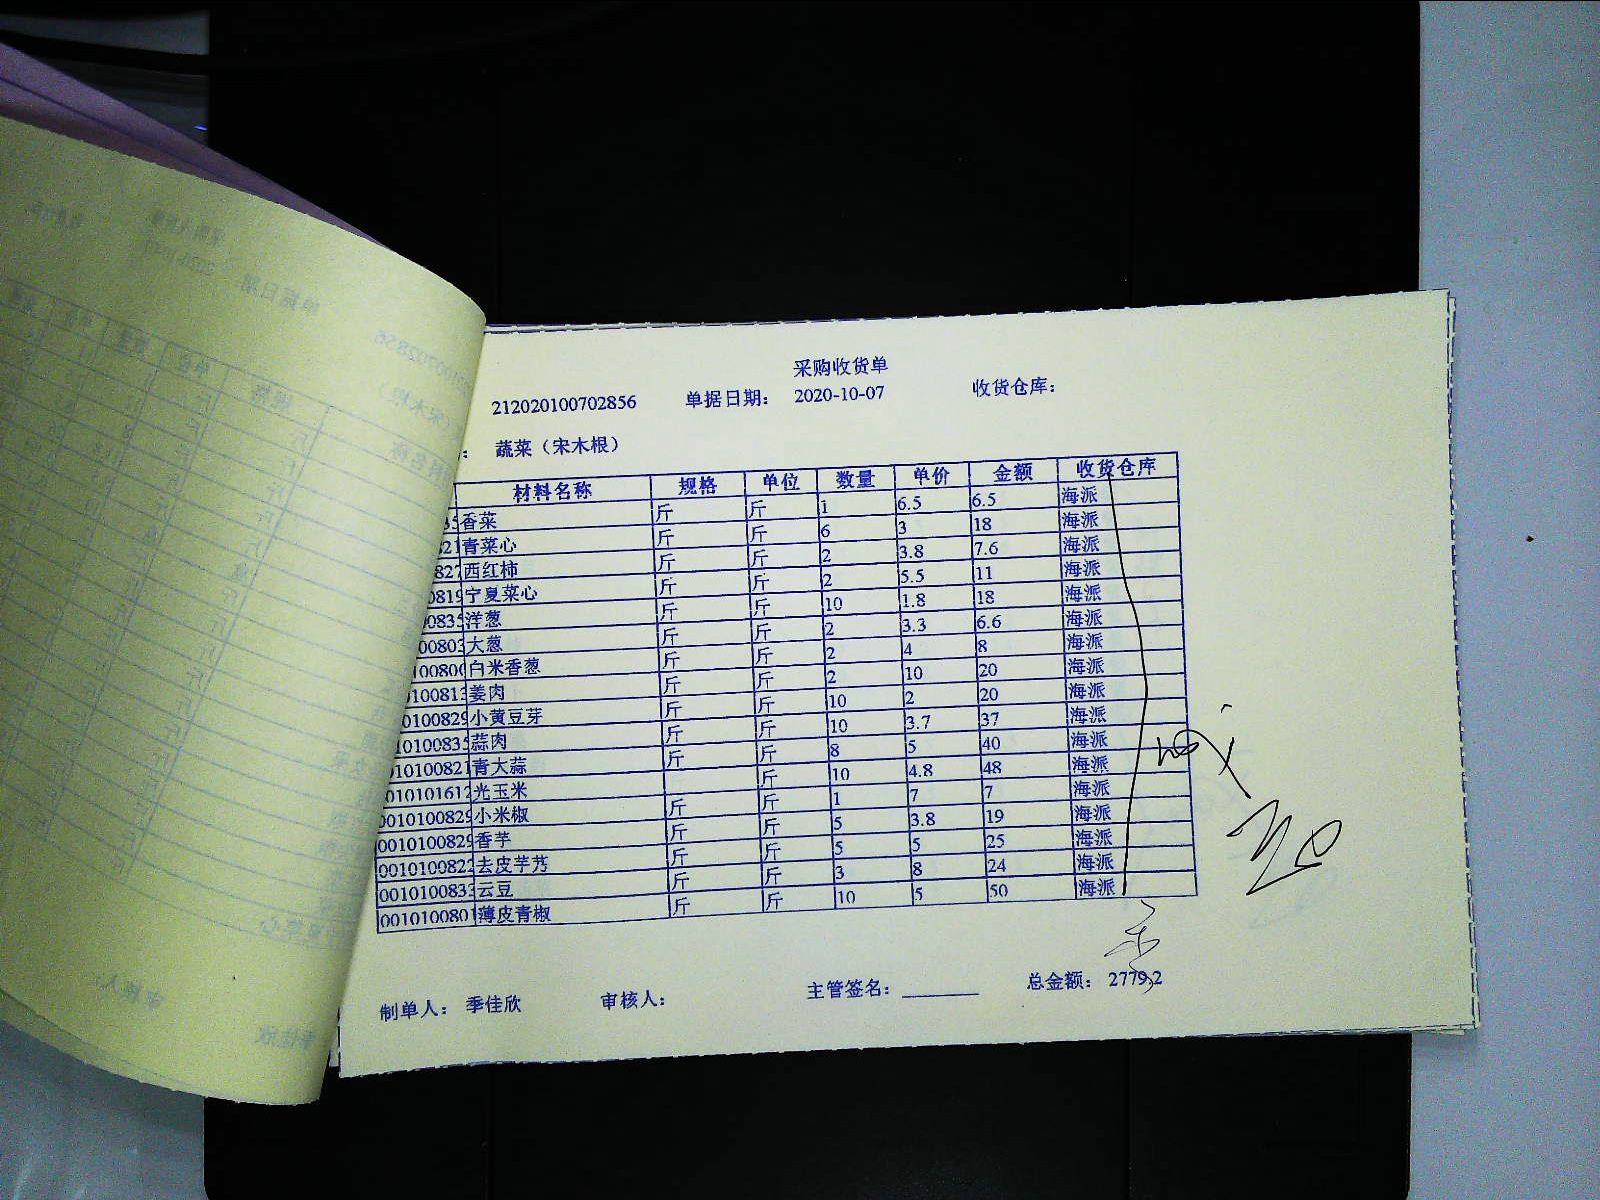 采购收货单
212020100702856 单据日期： 2020-10-07 收货仓库：
： 蔬菜（宋木根）
材料名称 规格 单位 数量 单价 金额 收货仓库
35 香菜 斤 斤 1 6.5 6.5 海派
821 青菜心 斤 斤 6 3 18 海派
827 西红柿 斤 斤 2 3.8 7.6 海派
0819 宁夏菜心 斤 斤 2 5.5 11 海派
00835 洋葱 斤 斤 10 1.8 18 海派
00803 大葱 斤 斤 2 3.3 6.6 海派
100800 白米香葱 斤 斤 2 4 8 海派
100813 姜肉 斤 斤 2 10 20 海派
0100829 小黄豆芽 斤 斤 10 2 20 海派
10100835 蒜肉 斤 斤 10 3.7 37 海派
010100821 青大蒜 斤 斤 8 5 40 海派
010101612 光玉米 斤 10 4.8 48 海派
0010100829 小米椒 斤 斤 1 7 7 海派
0010100829 香芋 斤 斤 5 3.8 19 海派
0010100822 去皮芋艿 斤 斤 5 5 25 海派
0010100833 云豆 斤 斤 3 8 24 海派
0010100801 薄皮青椒 斤 斤 10 5 50 海派
制单人： 季佳欣 审核人： 主管签名： 总金额： 2779.2